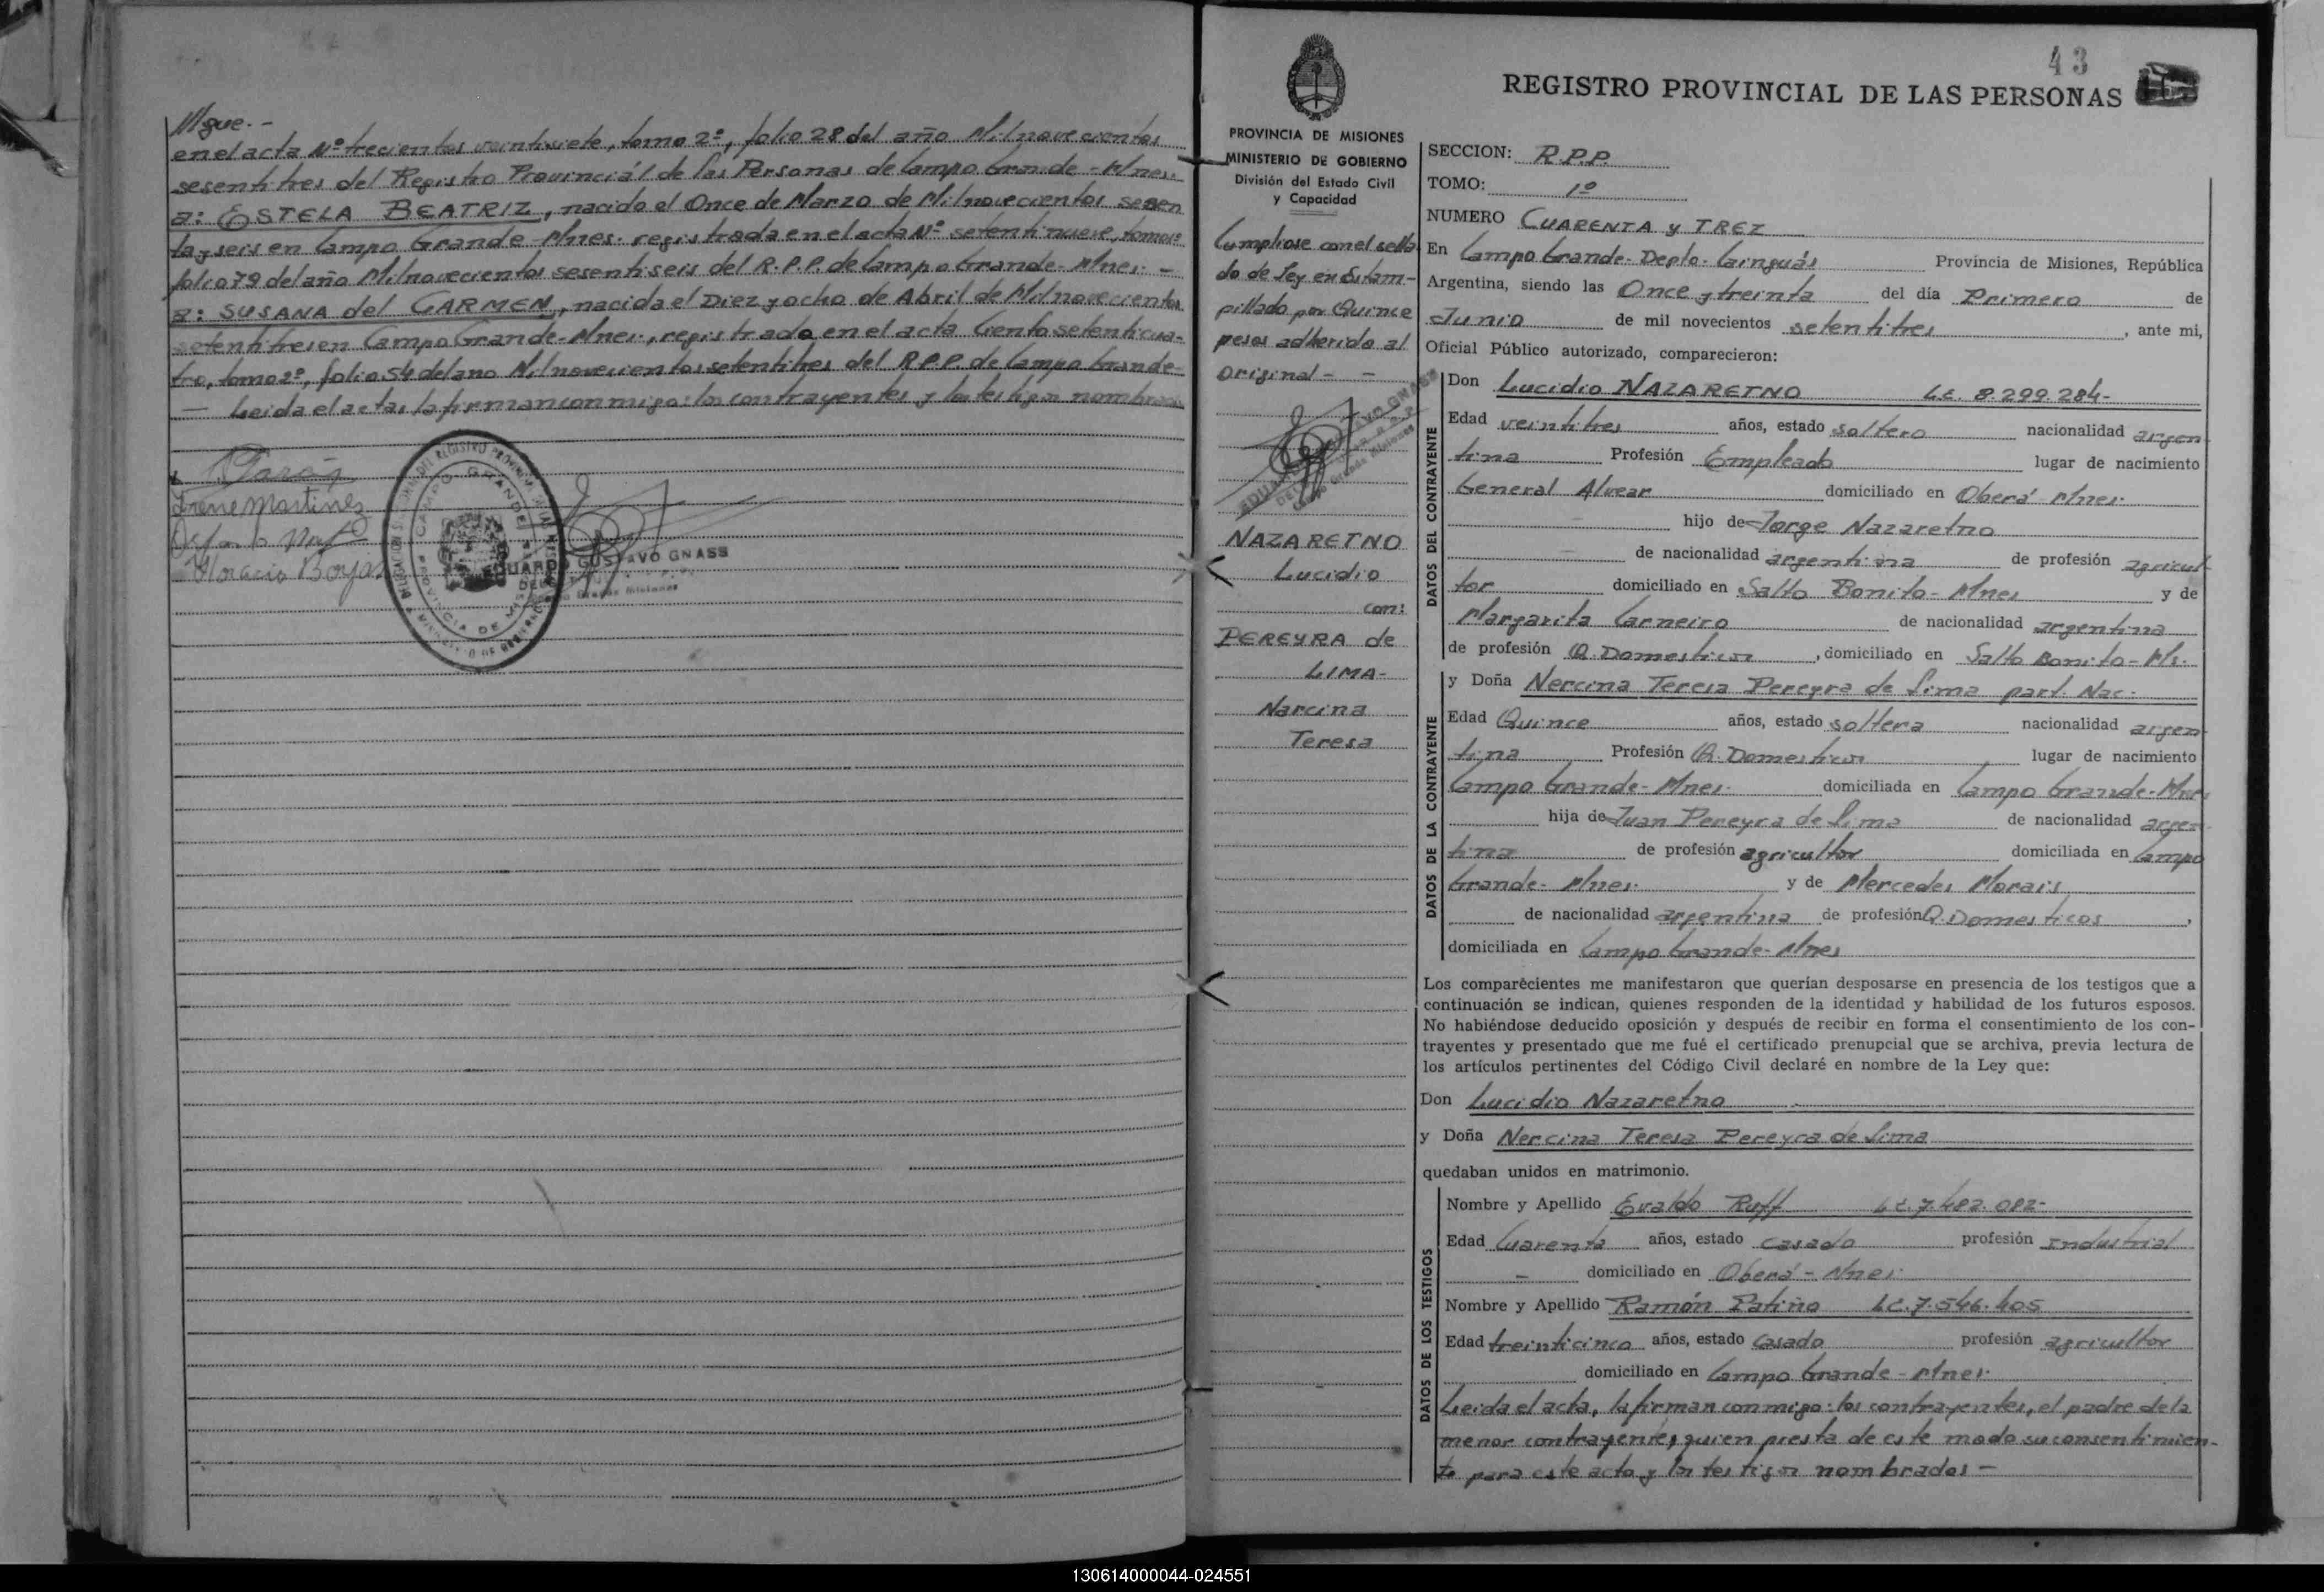 ///gue.-
en el acta Nº trecientos veintisiete, tomo 2º, folio 28 del año Milnovecientos
sesentitres del Registro Provinciál de las Personas de Campo Grande-Mnes.
a: ESTELA BEATRIZ, nacida el Once de Marzo de Milnovecientos sesen
ta y seis en Campo Grande Mnes. registrada en el acta Nº setentinueve, tomo
folio 79 del año Milnovecientos sesentiseis del R.P.P. de Campo Grande-Mnes.-
a: SUSANA del CARMEN, nacida el Diez y ocho de Abril de Milnovecientos
setentitres en Campo Grande-Mnes., registrada en el acta Ciento setenticua-
tro, tomo 2º, folio 54 del ano Milnovecientos setentitres del R.P.P. de Campo Grande-
— Leida el acta, la firman conmigo: los contrayentes y los testigos nombrados
Irene Martinez
Horacio Boya
CAMPO GRANDE
PROVINCIA DE MISIONES
EDUARDO GUSTAVO GNASS
Campo Grande Misiones
43
REGISTRO PROVINCIAL DE LAS PERSONAS
PROVINCIA DE MISIONES
MINISTERIO DE GOBIERNO
División del Estado Civil
y Capacidad
Cumpliose con el sella
do de Ley en Estam-
pillado por Quince
pesos adherido al
Original - -
EDUARDO GUSTAVO GNASS
Campo Grande Misiones
NAZARETNO
Lucidio
con:
PEREYRA de
LIMA-
Narcina
Teresa
SECCION: R.P.P.
TOMO: 1º
NUMERO CUARENTA y TREZ
En Campo Grande- Depto- Cainguás Provincia de Misiones, República
Argentina, siendo las Once y treinta del día Primero de
Junio de mil novecientos setentitres, ante mi,
Oficial Público autorizado, comparecieron:
DATOS DEL CONTRAYENTE
Don Lucidio NAZARETNO L.C. 8.299.284-
Edad veintitres años, estado soltero nacionalidad argen-
tina Profesión Empleado lugar de nacimiento
General Alvear domiciliado en Oberá Mnes.
- hijo de Jorge Nazaretno
- de nacionalidad argentina de profesión agricul-
tor domiciliado en Salto Bonito- Mnes y de
Margarita Carneiro de nacionalidad argentina
de profesión Q. Domesticos, domiciliado en Salto Bonito- Ms.
DATOS DE LA CONTRAYENTE
y Doña Nercina Teresa Pereyra de Lima part. Nac.
Edad Quince años, estado soltera nacionalidad argen-
tina Profesión Q. Domesticos lugar de nacimiento
Campo Grande- Mnes. domiciliada en Campo Grande- Mnes
hija de Juan Pereyra de Lima de nacionalidad argen-
tina de profesión agricultor domiciliada en Campo
Grande- Mnes. y de Mercedes Morais
de nacionalidad argentina de profesión Q. Domesticos,
domiciliada en Campo Grande- Mnes
Los comparecientes me manifestaron que querían desposarse en presencia de los testigos que a
continuación se indican, quienes responden de la identidad y habilidad de los futuros esposos.
No habiéndose deducido oposición y después de recibir en forma el consentimiento de los con-
trayentes y presentado que me fué el certificado prenupcial que se archiva, previa lectura de
los artículos pertinentes del Código Civil declaré en nombre de la Ley que:
Don Lucidio Nazaretno
y Doña Nercina Teresa Pereyra de Lima
quedaban unidos en matrimonio.
DATOS DE LOS TESTIGOS
Nombre y Apellido Evaldo Ruff L.C. 7.482.082-
Edad Cuarenta años, estado casado profesión Industrial
- domiciliado en Oberá- Mnes.
Nombre y Apellido Ramón Patiño L.C. 7.546.405
Edad treinticinco años, estado casado profesión agricultor
domiciliado en Campo Grande- Mnes.
Leida el acta, la firman conmigo: los contrayentes, el padre de la
menor contrayente, quien presta de este modo su consentimien-
to para este acto y los testigos nombrados -
130614000044-024551